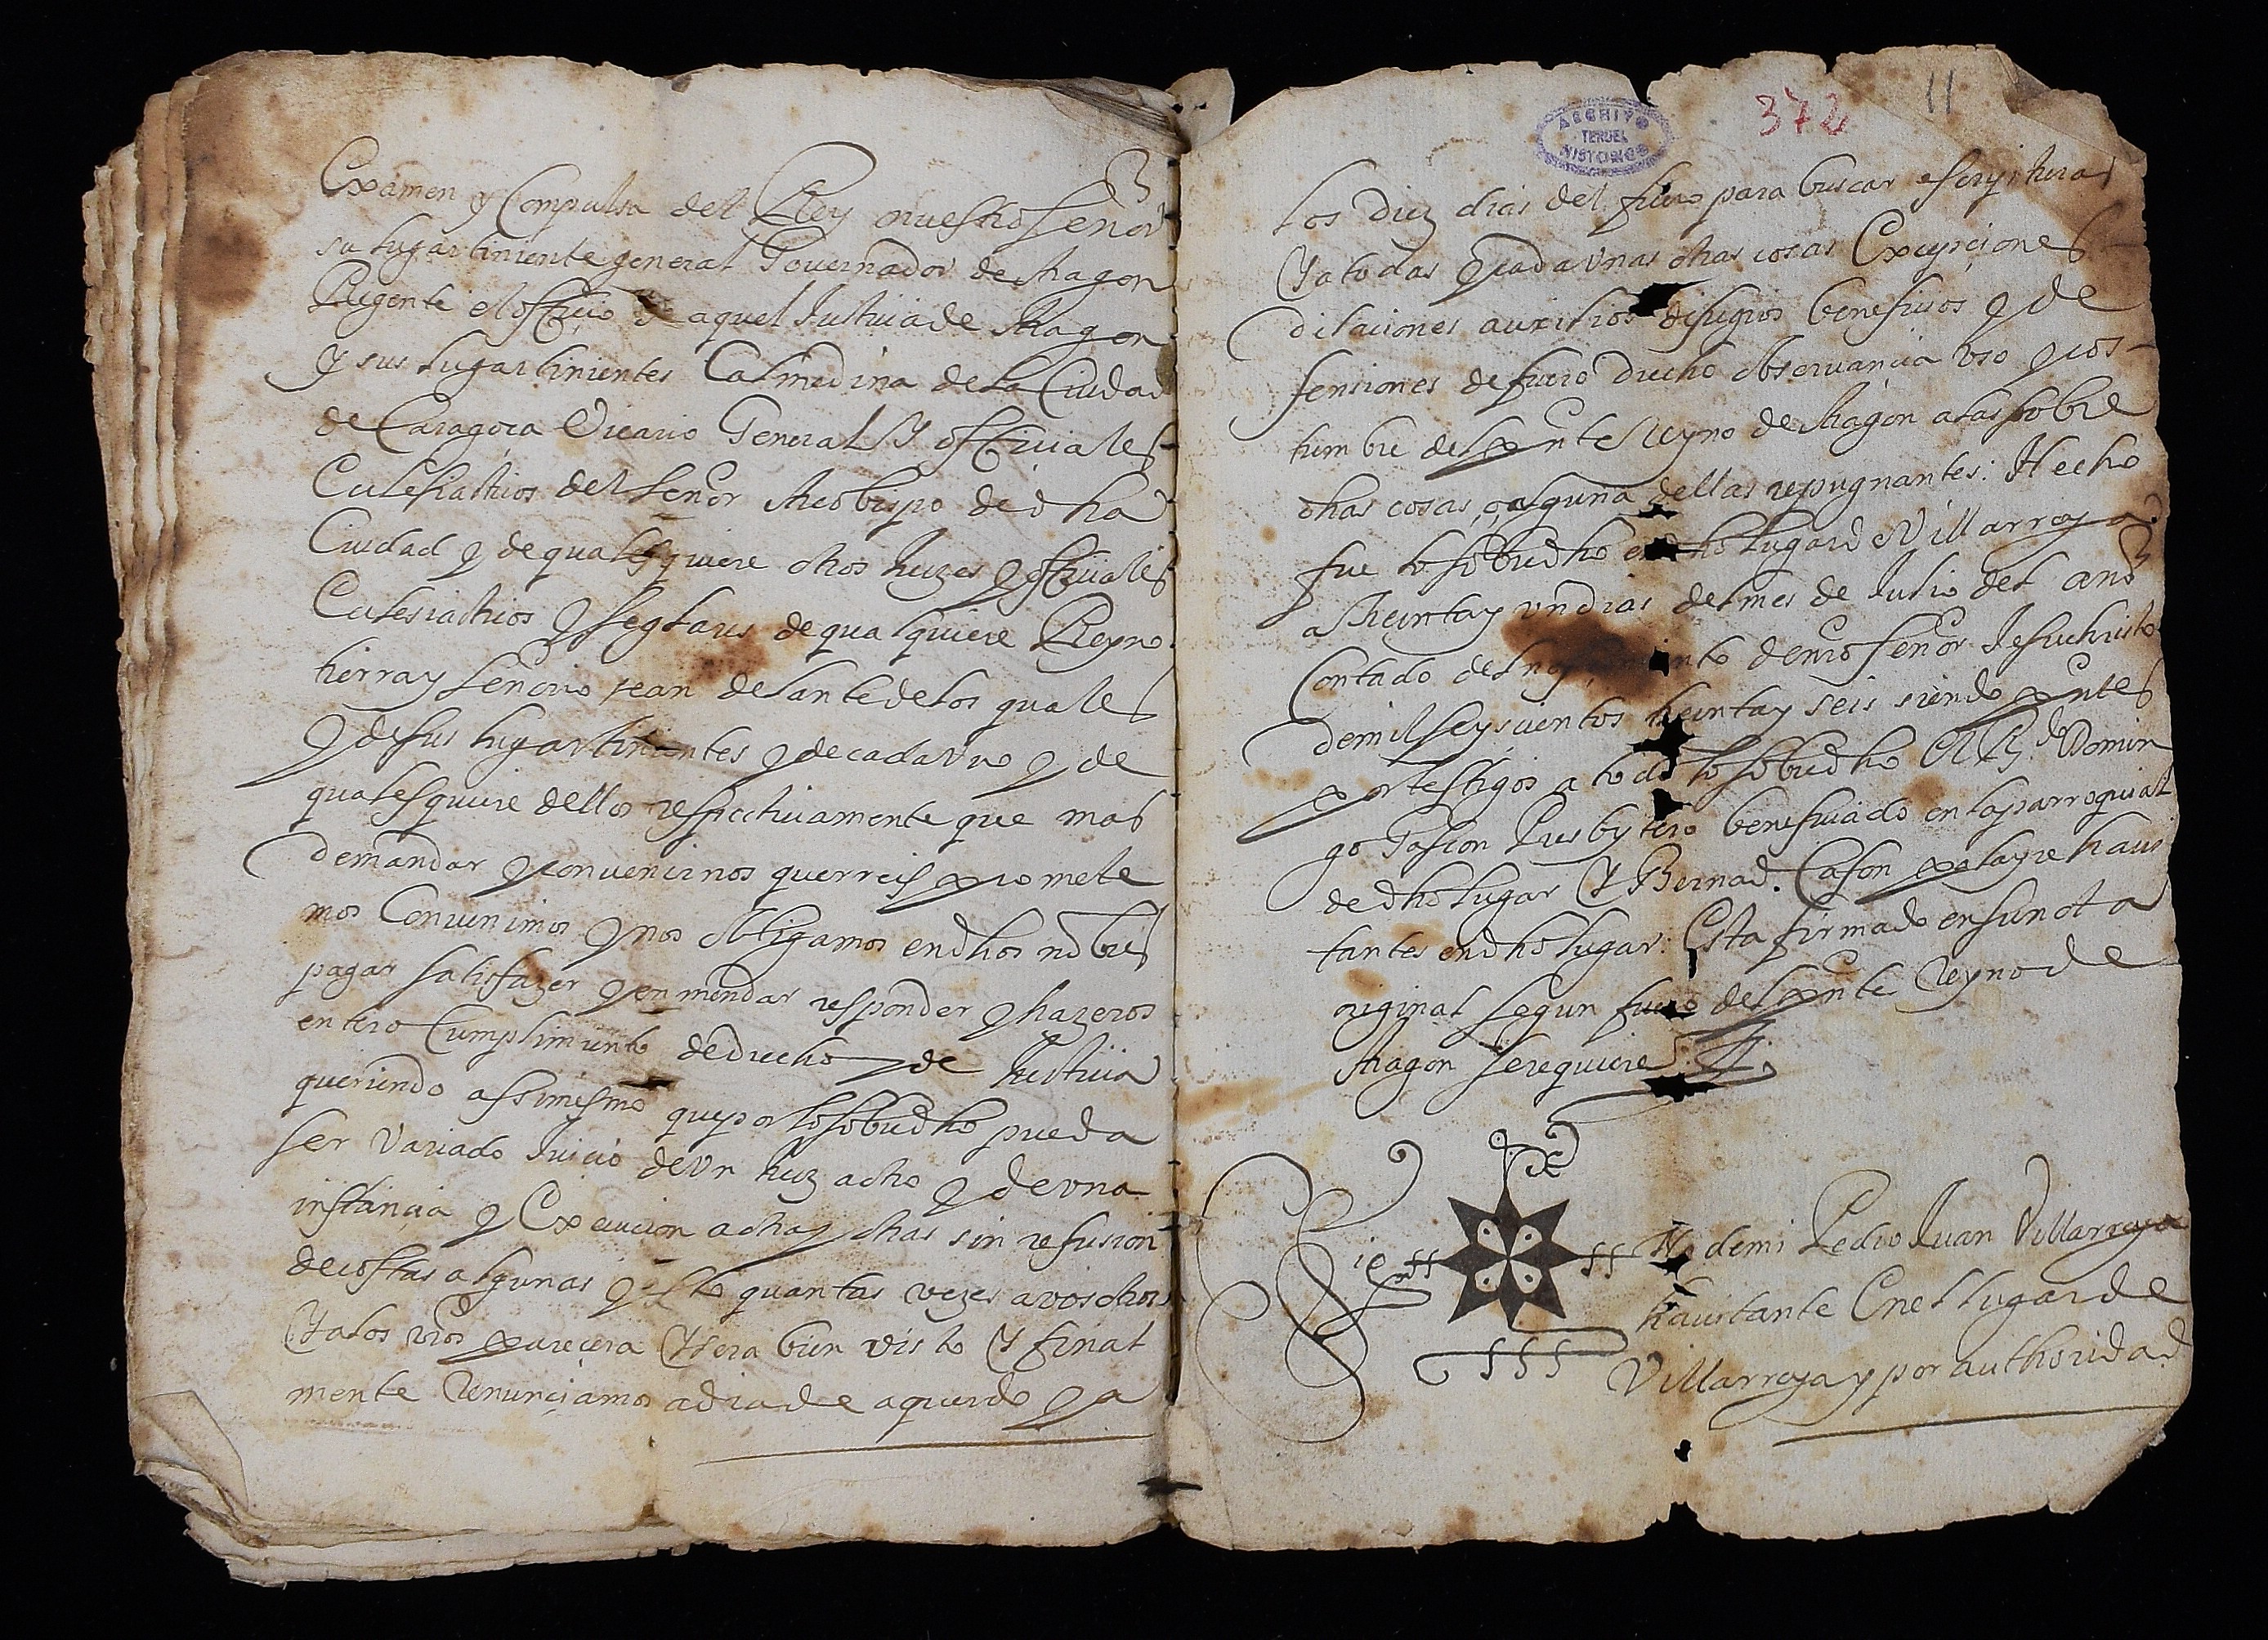 Examen y Compulsa del Rey nuestro Señor
su lugartiniente general Gouernador de Aragon
Regente el officio de aquel Justicia de Aragon
Y sus lugartinientes Çalmedina de la Ciudad
de Caragoça Vicario General Y officiales
Eclesiasticos del Señor Arcobispo de dha
Ciudad y de qualesquiere otros Juezes y officiales
Eclesiasticos y seglares de qualquiere Reyno
tierra y Señorio sean delante de los quales
y de sus lugartinientes y de cada vno y de
qualesquiere dellos respectiuamente que mas
demandar y conuenirnos querreis promete
mos Conuenimos y nos obligamos en dhos nobres
pagar satisfazer y enmendar responder y hazeros
entero Cumplimiento de drecho y de Justicia
queriendo assimesmo que por lo sobredho pueda
ser Variado Juicio de vn Juez a otro y de vna
instancia y Execucion a otra y otras sin refusion
de costas algunas y esto quantas vezes a vosotros
Y a los vros parecera Y sera bien visto Y final
mente Renunçiamos a dia de acuerdo y a
ARCHIVO
TERUEL
HISTORICO
372
11
los diez dias del fuero para buscar escryturas
Y a todas y cada vnas otras cosas Excepciones
dilaciones auxilios difugios beneficios y de
fensiones de fuero drecho obseruancia vso y cos-
tumbre del pnte Reyno de Aragon a las sobre
dhas cosas o alguna dellas repugnantes. Hecho
fue lo sobredho en dho lugar d Villarroya
a treinta y vn dias del mes de Julio del año
Contado del nacimiento de nro Señor Jesuchristo
de mil seyscientos treinta y seis siendo pntes
por testigos a todo lo sobredho El Rdo Domin
go Gascon Presbytero beneficiado en la parroquial
de dho lugar Y Bernad. Cason pelayre haui
tantes en dho lugar. Esta firmado en su nota
original segun fuero del pnte Reyno de
Aragon se requiere
Sig no de mi Pedro Juan Villarroya
hauitante En el lugar de
Villarroya y por authoridad